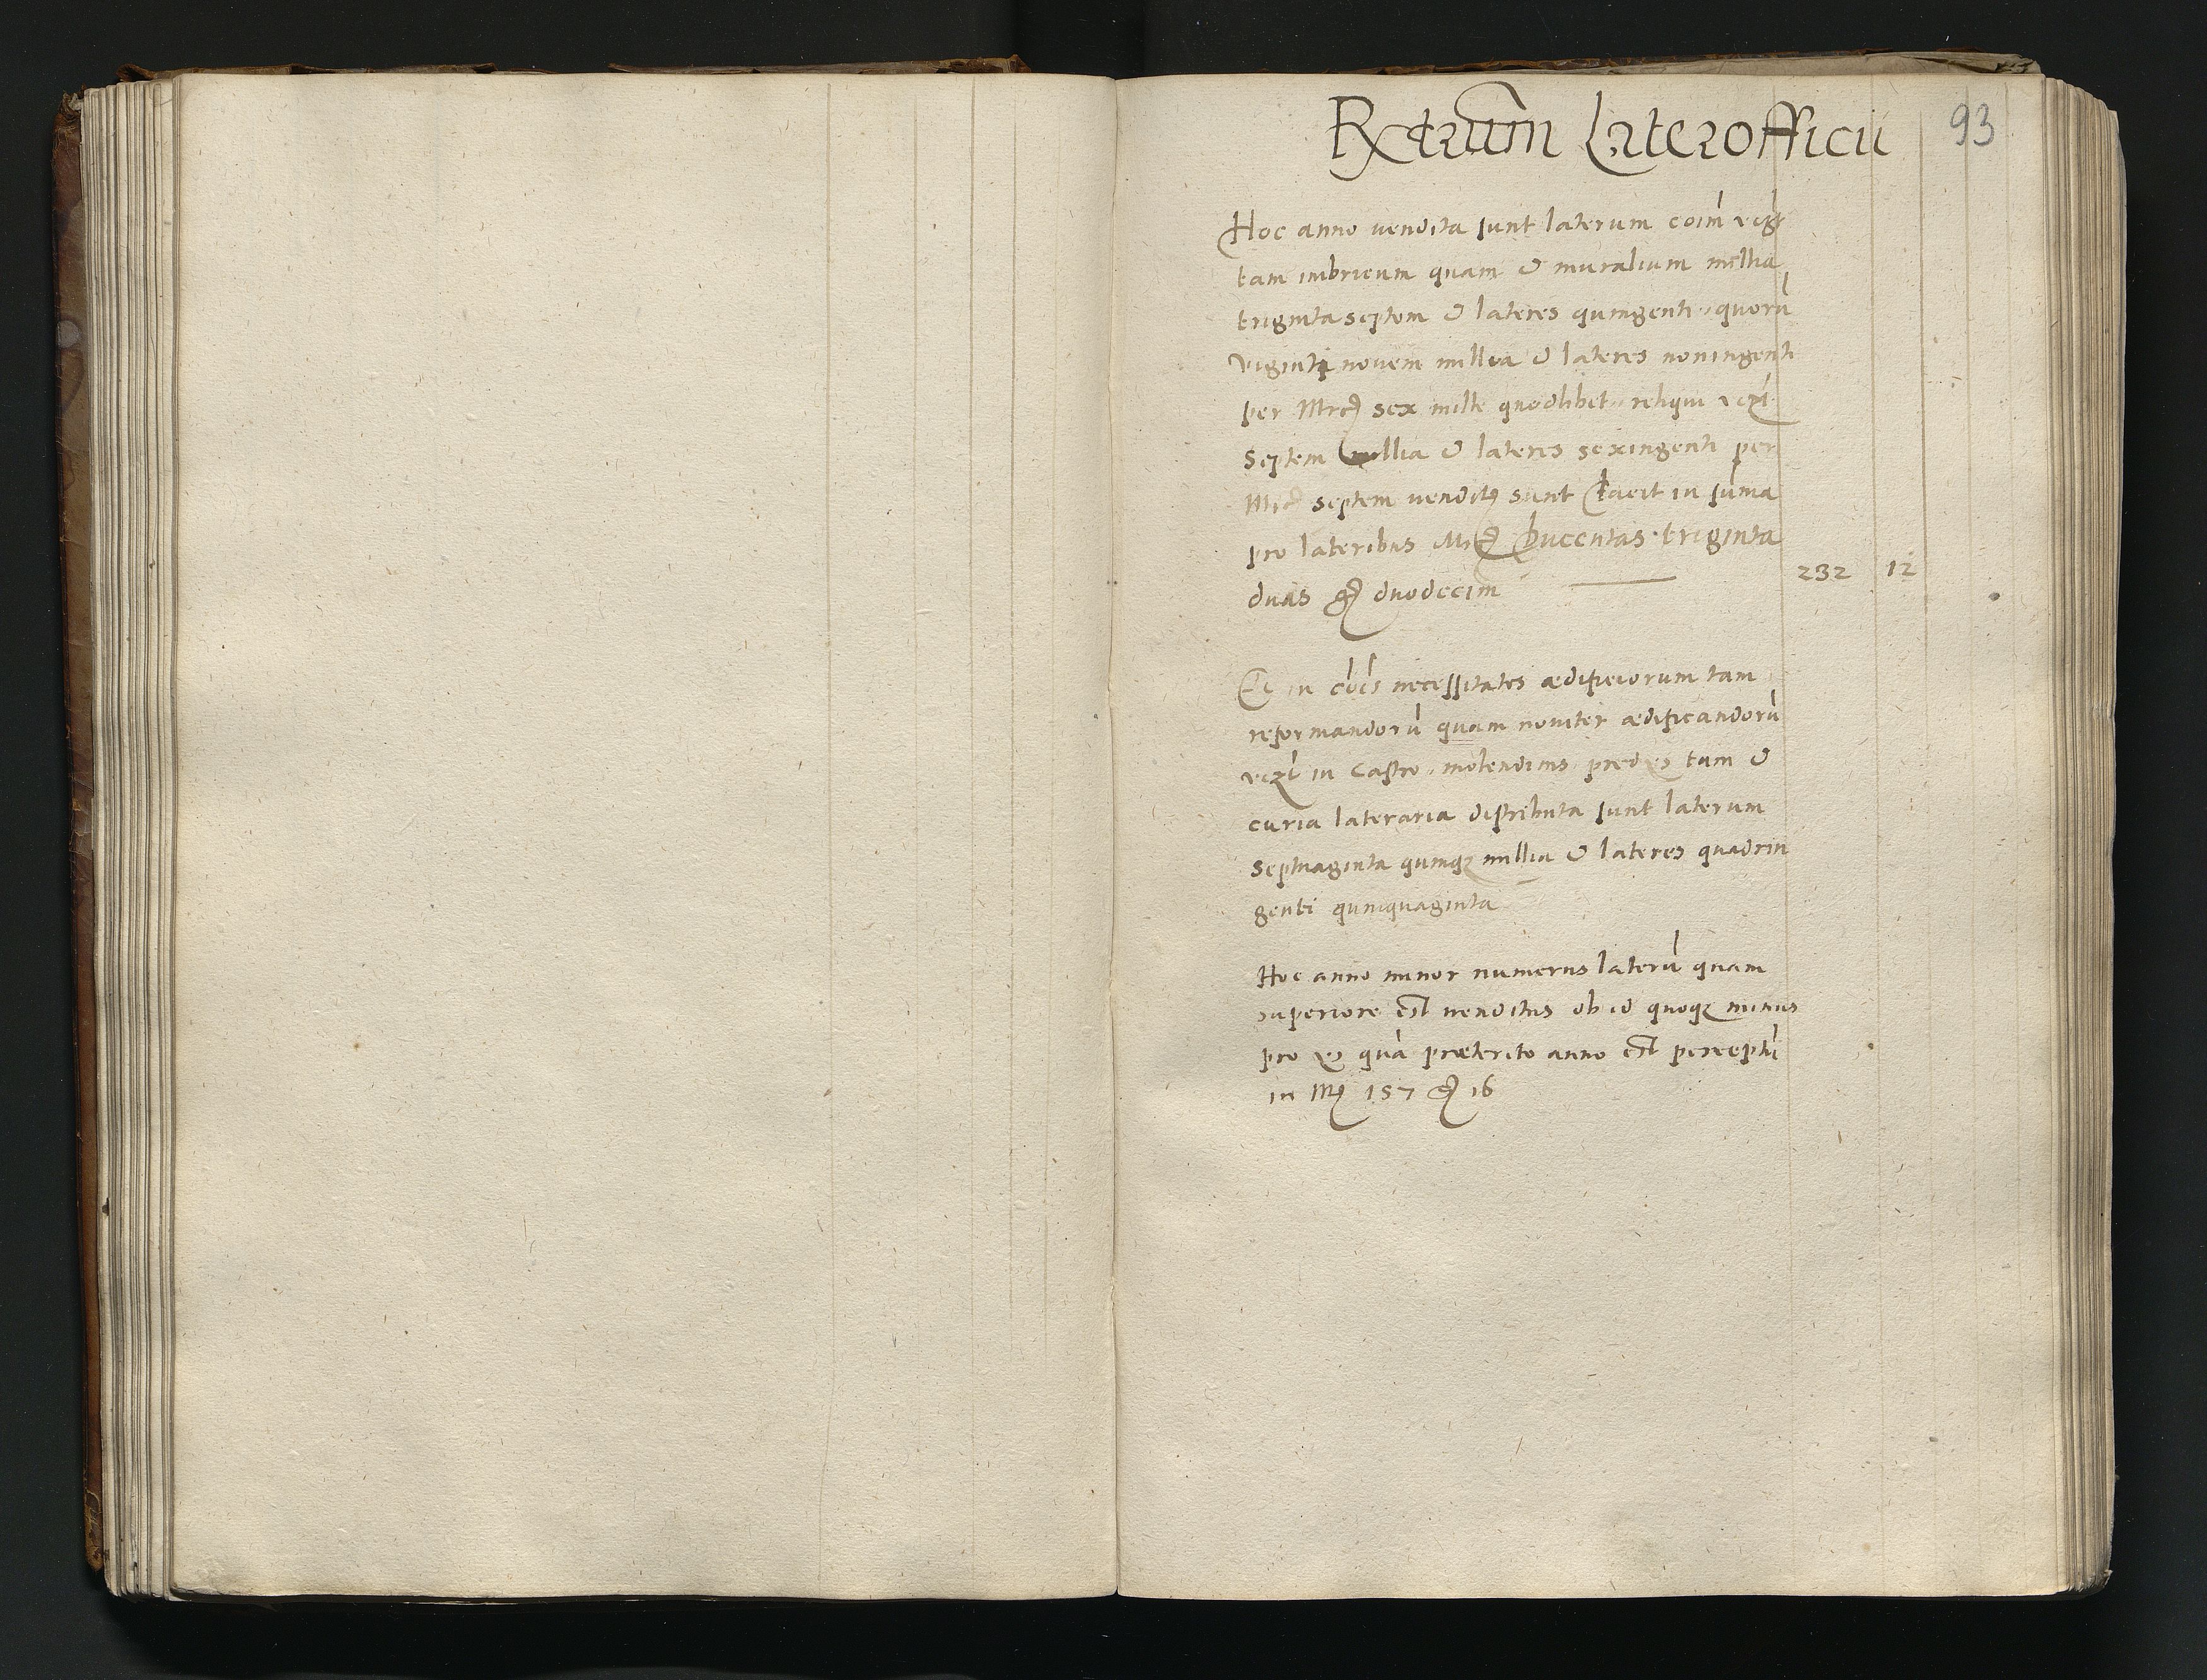 93
Hoc anno vendita sunt laterum coim̄
tam imbricum quam & muralium millia
triginta septem & lateres quingenti, quorū
viginti novem millia & lateres noningenti
per Mrc sex mille quodlibet, reliqui vczt
septem millia & lateres sexingenti per
Mrc septem venditi sunt facit in suma
pro lateribus Mrc Ducentas triginta
duas gr duodecim 232 12
Et in necessitates ædificiorum tam
reformandorū quam noviter ædificandorū
vczt in Castro, molendinis tum &
curia lateraria distributa sunt laterum
septuaginta quinqz millia & lateres quadrin
genti quinquaginta
Hoc anno minor numerus laterū quam
superiore est venditus ob id quoqz minus
pro eis quā præterito anno est perceptū
in Mr 157 gr 16